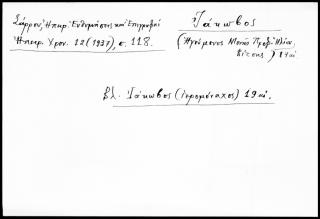 Σάρρου, Ηπειρ. Ενθυμήσεις και Επιγραφαί
Ηπειρ. Χρον. 12 (1937), σ. 118.
Ἰάκωβος
(Ηγούμενος Μονής Προφ. Ηλία
) 19 αι.
Βλ. Ἰάκωβος (ιερομόναχος) 19 αι.